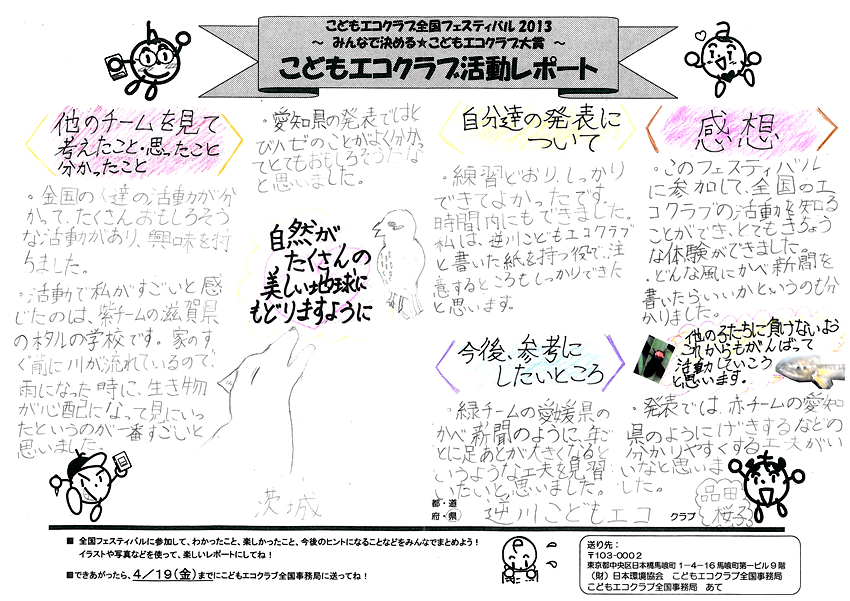 こどもエコクラブ全国フェスティバル 2013
～ みんなで決める★こどもエコクラブ大賞 ～
こどもエコクラブ活動レポート
他のチームを見て
考えたこと・思ったこと
分かったこと
・全国の人達の活動が分
かって、たくさんおもしろそう
な活動があり、興味を持
ちました。
・活動で私がすごいと感
じたのは、紫チームの滋賀県
のホタルの学校です。家のす
ぐ前に川が流れているので、
雨になった時に、生き物
が心配になって見にいっ
たというのが一番すごいと
思いました。
・愛知県の発表ではと
びハゼのことがよく分かっ
てとてもおもしろそうだな
と思いました。
自然が
たくさんの
美しい地球に
もどりますように
茨城
自分達の発表に
ついて
・練習どおり、しっかり
できてよかったです。
時間内にもできました。
私は、逆川こどもエコクラブ
と書いた紙を持つ役で、注
意するところもしっかりできた
と思います。
今後、参考に
したいところ
・緑チームの愛媛県の
かべ新聞のように、年ご
とに足あとが大きくなると
いうような工夫を見習
いたいと思いました。
都・道
府・県
逆川こどもエコ
クラブ
感想
・このフェスティバル
に参加して、全国のエ
コクラブの活動を知る
ことができ、とてもきちょう
な体験ができました。
・どんな風にかべ新聞を
書いたらいいかというのも分
かりました。
他の子たちに負けないお
これからもがんばって
活動していこう
と思います。
・発表では、赤チームの愛知
県のようにげきするなどの
分かりやすくする工夫がい
いなと思いま
した。
品田
桜子
■ 全国フェスティバルに参加して、わかったこと、楽しかったこと、今後のヒントになることなどをみんなでまとめよう！
イラストや写真などを使って、楽しいレポートにしてね！
■できあがったら、4／19（金）までにこどもエコクラブ全国事務局に送ってね！
送り先：
〒103-0002
東京都中央区日本橋馬喰町1－4－16馬喰町第一ビル9階
（財）日本環境協会 こどもエコクラブ全国事務局
こどもエコクラブ全国事務局 あて